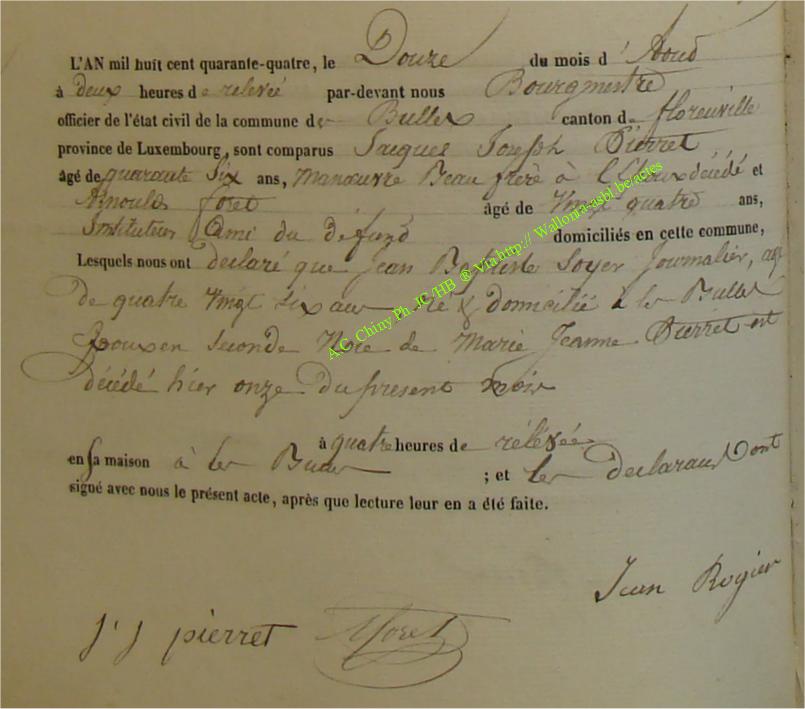 L'AN mil huit cent quarante-quatre, le Douze du mois d'Aoud
à deux heures de relevée par-devant nous Bourgmestre
officier de l'état civil de la commune de Bulles canton de florenville
province de Luxembourg, sont comparus Jacques Joseph Pierret
âgé de quarante Six ans, manœuvre Beau frère à l'Epoux décédé et
Arnould foret âgé de Vingt quatre ans,
Instituteur Ami du défund domiciliés en cette commune,
Lesquels nous ont declaré que Jean Baptiste Soyer Journalier, agé
de quatre Vingt Six ans né & domicilié à les Bulles
Epoux en seconde Noce de Marie Jeanne Pierret est
décédé hier onze du present mois
à quatre heures de rélévée
en sa maison à les Bulles ; et les declarans ont
signé avec nous le présent acte, après que lecture leur en a été faite.
Jean Rogier
J. J pierret AForet
A.C. Chiny Ph. JC /HB ® Via http:// Wallonia-asbl.be/actes